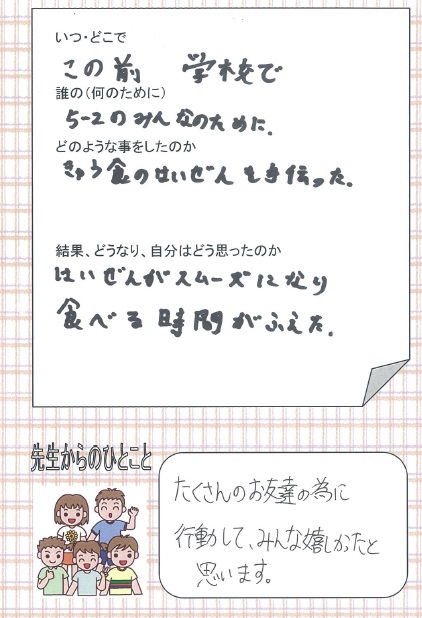 いつ・どこで
この前　学校で
誰の(何のために)
5-2のみんなのために.
どのような事をしたのか
きゅう食のはいぜんを手伝った.
結果、どうなり、自分はどう思ったのか
はいぜんがスムーズになり
食べる時間がふえた.
先生からのひとこと
たくさんのお友達の為に
行動して、みんな嬉しかったと
思います。